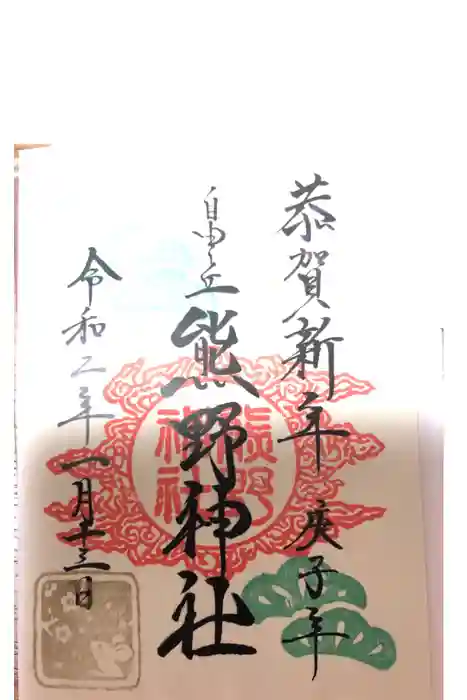 恭賀新年 庚子年
自由之丘
熊野神社
令和二年一月十三日
熊野神社